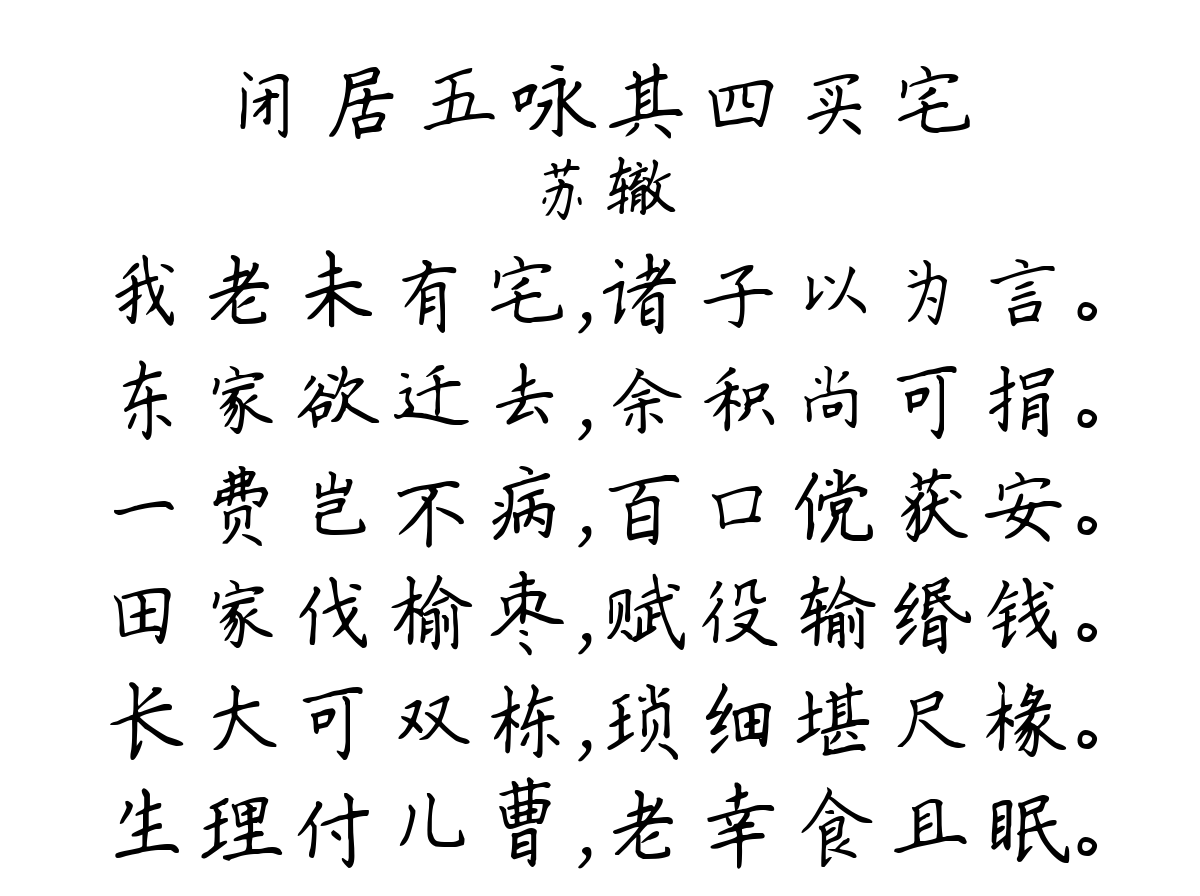 闭居五咏其四买宅
苏辙
我老未有宅,诸子以为言。
东家欲迁去,余积尚可捐。
一费岂不病,百口傥获安。
田家伐榆枣,赋役输缗钱。
长大可双栋,琐细堪尺椽。
生理付儿曹,老幸食且眠。